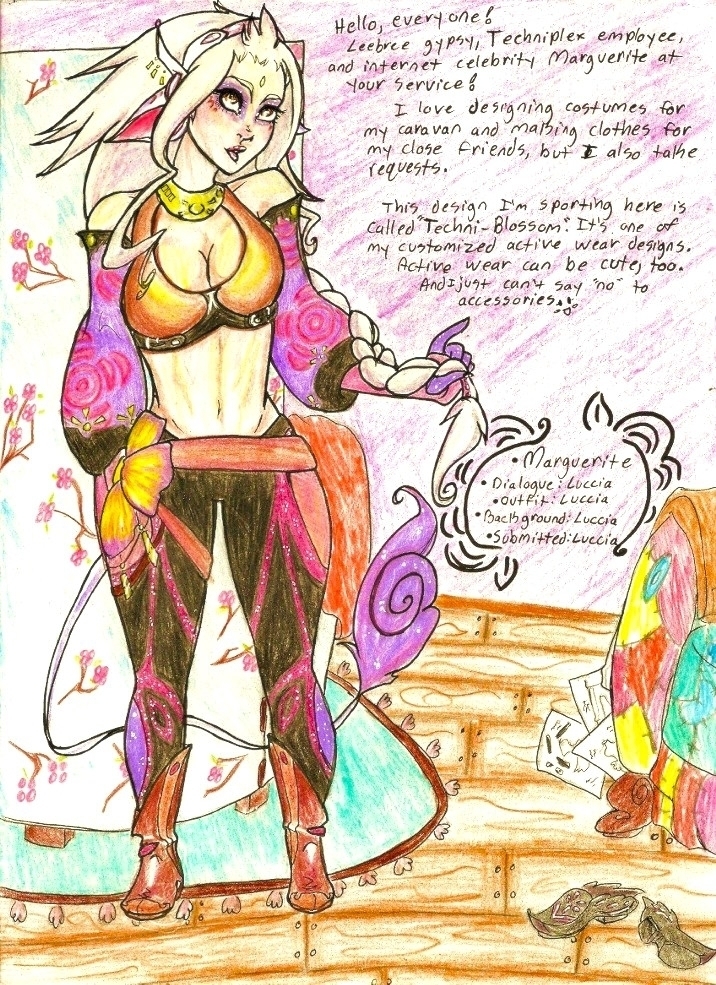 Hello, everyone!
Leebree gypsy, Techniplex employee,
and internet celebrity Marguerite at
your service!
I love designing costumes for
my caravan and making clothes for
my close friends, but I also take
requests.
This design I'm sporting here is
called "Techni-Blossom". It's one of
my customized active wear designs.
Active wear can be cute, too.
And I just can't say "no" to
accessories!!
• Marguerite
• Dialogue: Luccia
• Outfit: Luccia
• Background: Luccia
• Submitted: Luccia